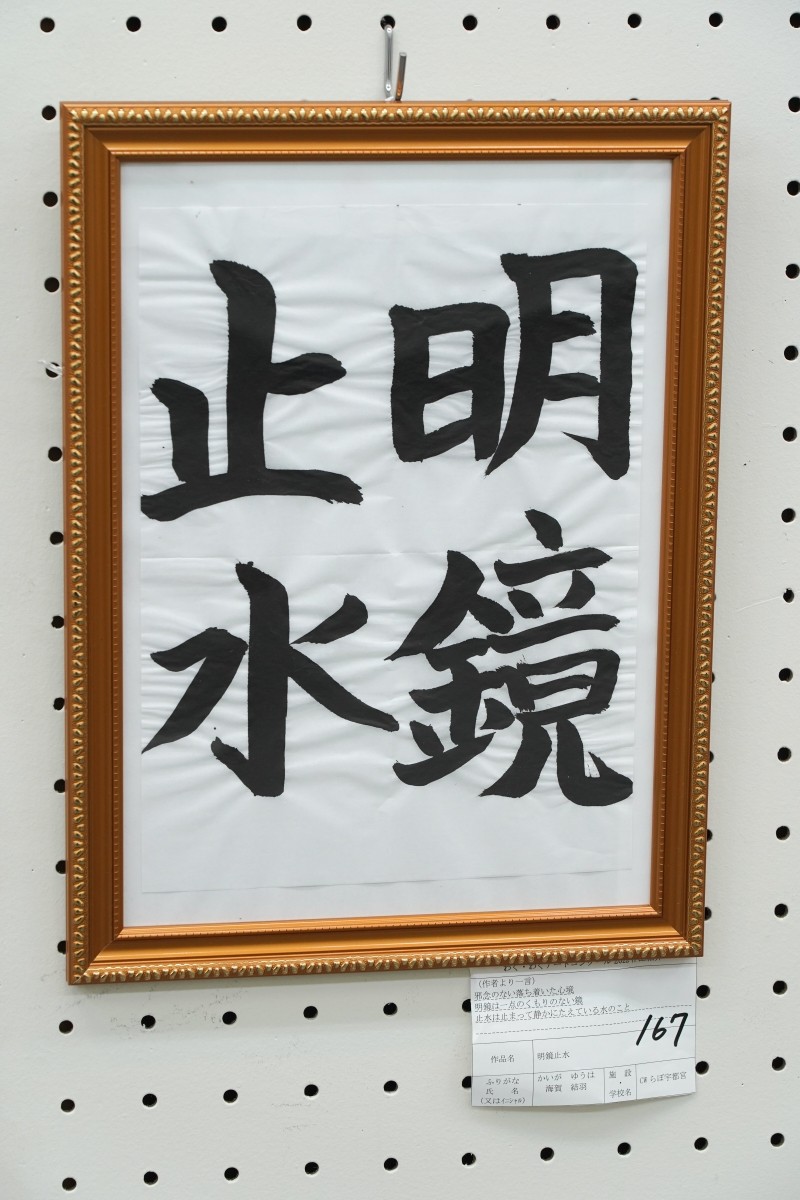 明鏡
止水
(作者より一言)
邪念のない落ち着いた心境
明鏡は一点のくもりのない鏡
止水は止まって静かにたたえている水のこと
167
作品名 明鏡止水
ふりがな かいが ゆうは
氏名 海賀 結羽
(又はイニシャル)
施設・学校名 CWらぼ宇都宮